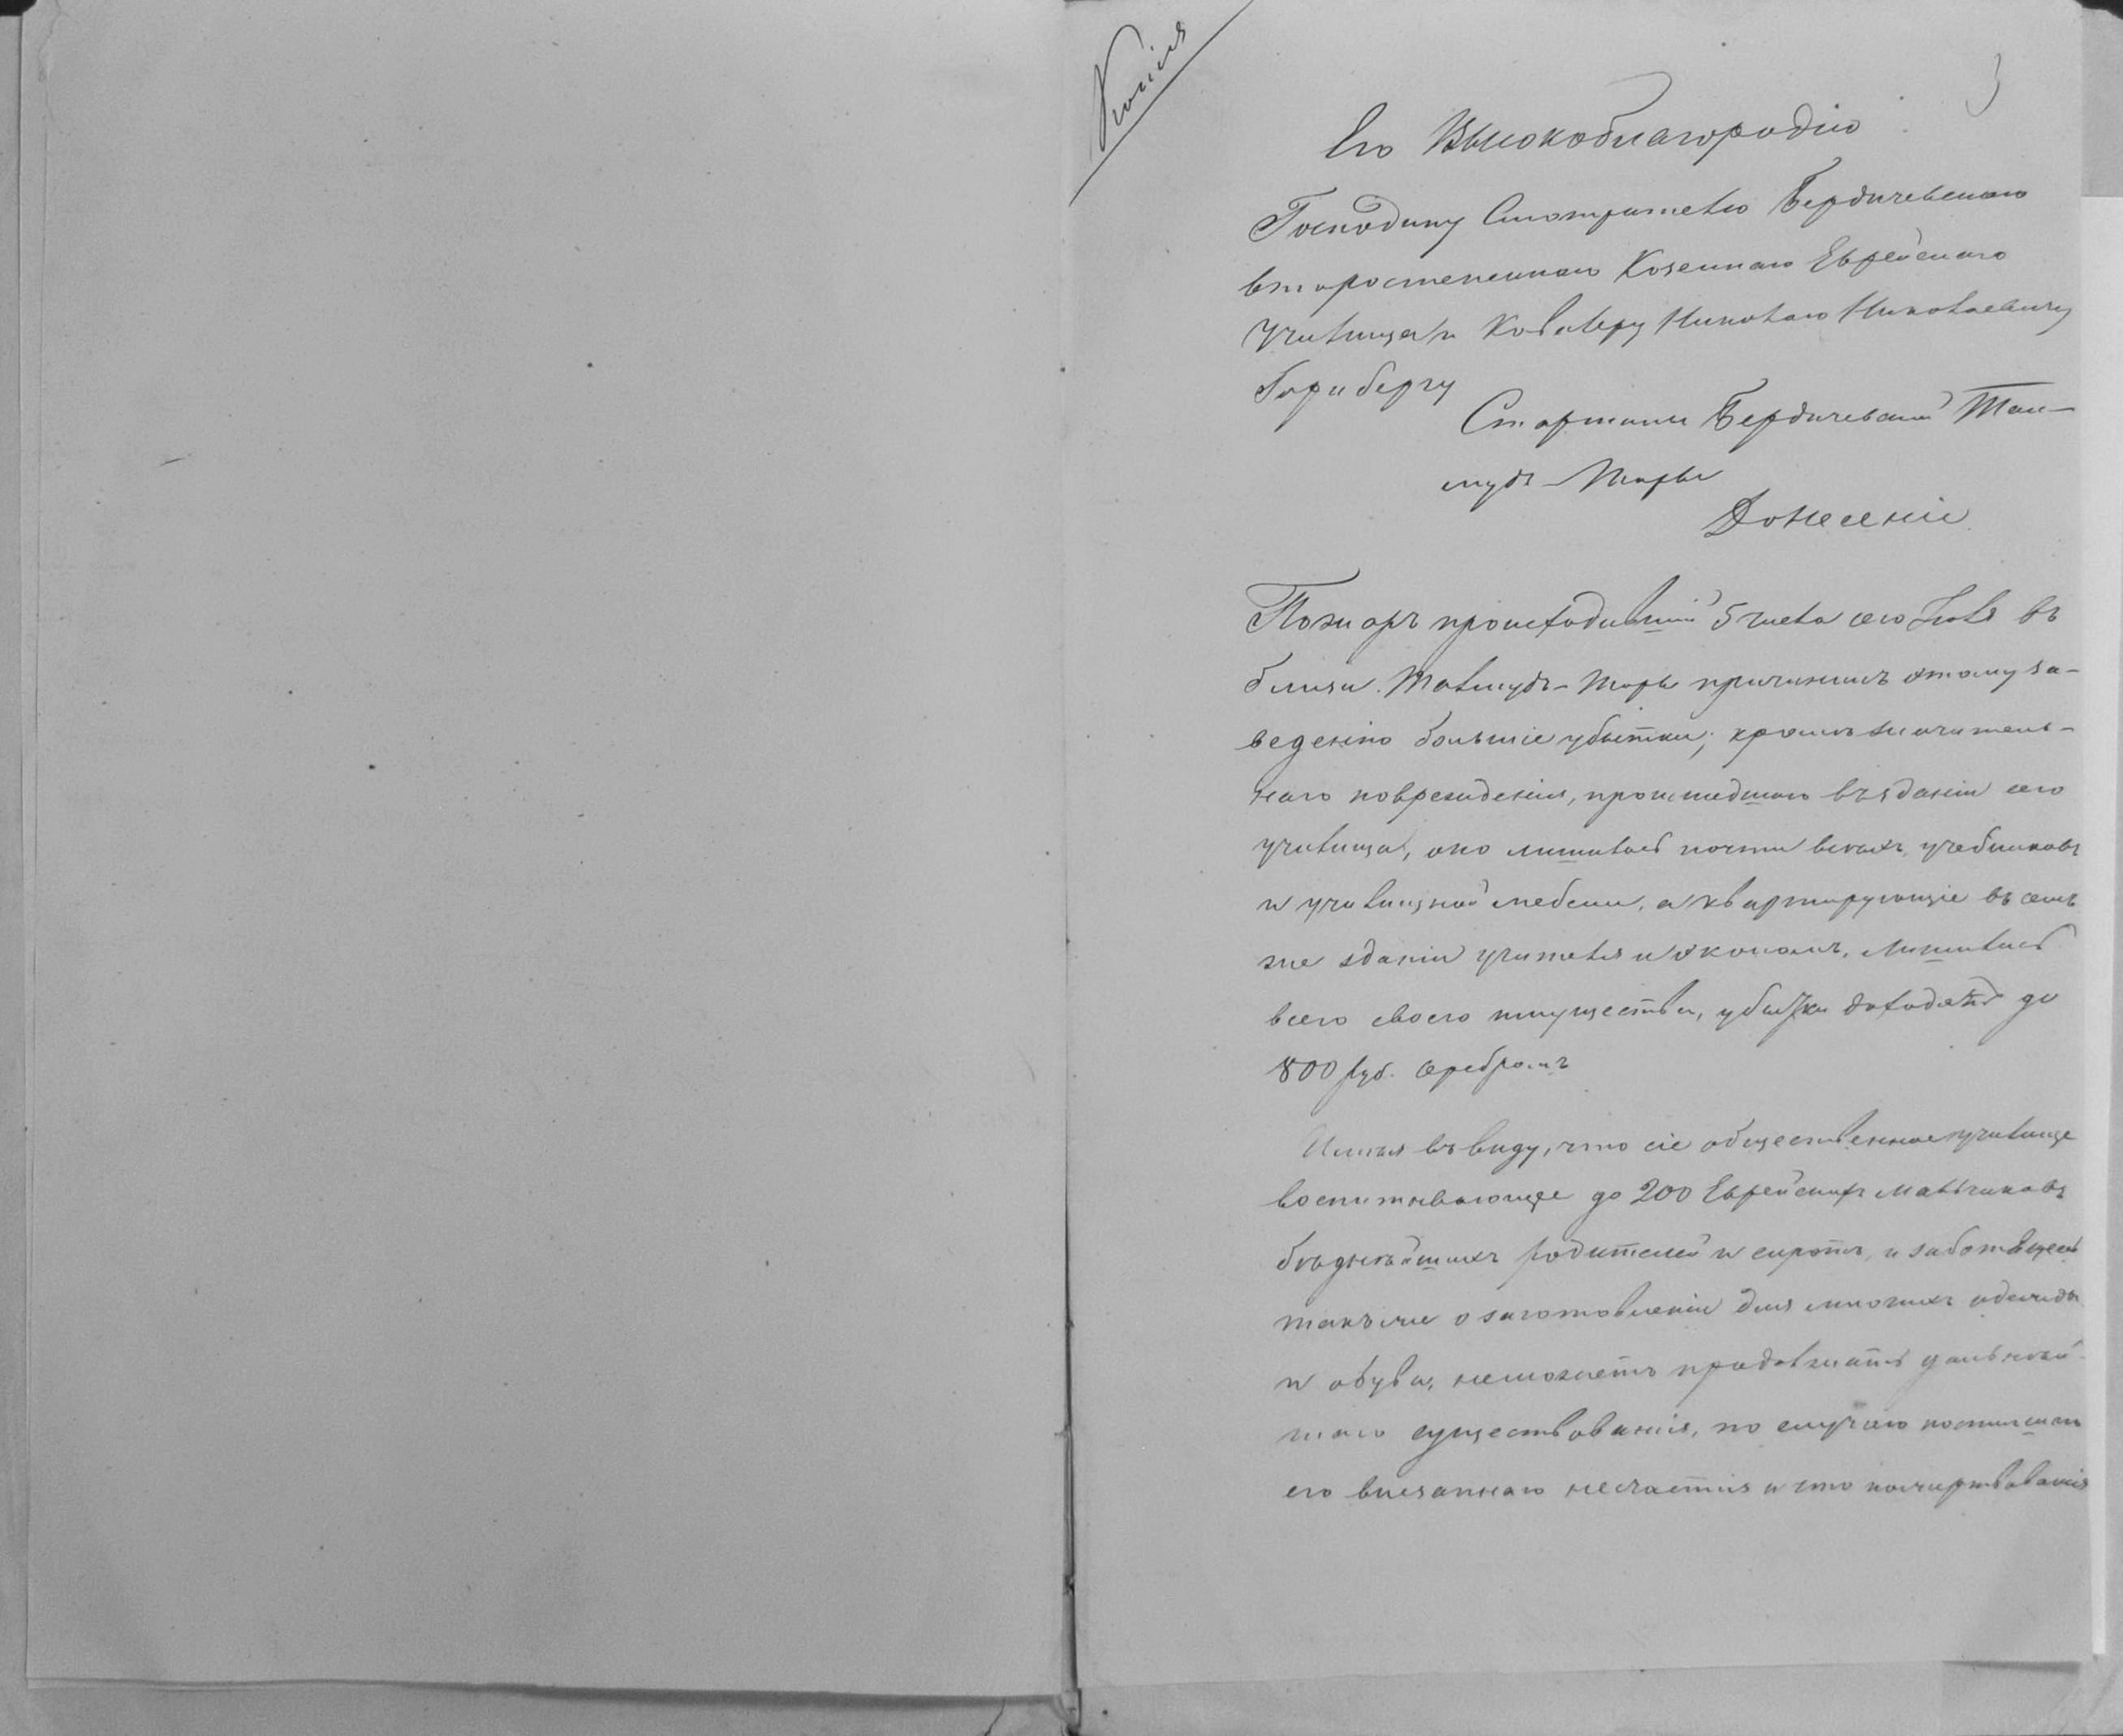 Копія
3
Его Высокоблагородію
Господину Смотрителю Бердичевскаго
второстепеннаго Казеннаго Еврейскаго
Училища и Кавалеру Николаю Николаевичу
Горнбергу
Старшины Бердичевской Тал-
мудъ-Торы
Донесеніе
Пожаръ происходившій 5 числа сего Іюля въ
близи Талмудъ-Торы причинилъ этому за-
веденію большіе убытки; кромѣ значитель-
наго поврежденія, происшедшаго въ зданіи сего
училища, оно лишилось почти всѣхъ учебниковъ
и училищной мебели, а квартирующіе въ семъ
же зданіи учителя и экономъ, лишились
всего своего имущества, убытки доходятъ до
800 руб. серебромъ
Имѣя въ виду, что сіе общественное училище
воспитывающее до 200 Еврейскихъ мальчиковъ
бѣднѣйшихъ родителей и сиротъ, и заботящееся
также о заготовленіи для многихъ одежды
и обуви, неможетъ продолжать дальнѣй-
шаго существованія, по случаю постигшаго
его внезапнаго несчастія и что пожертвованія